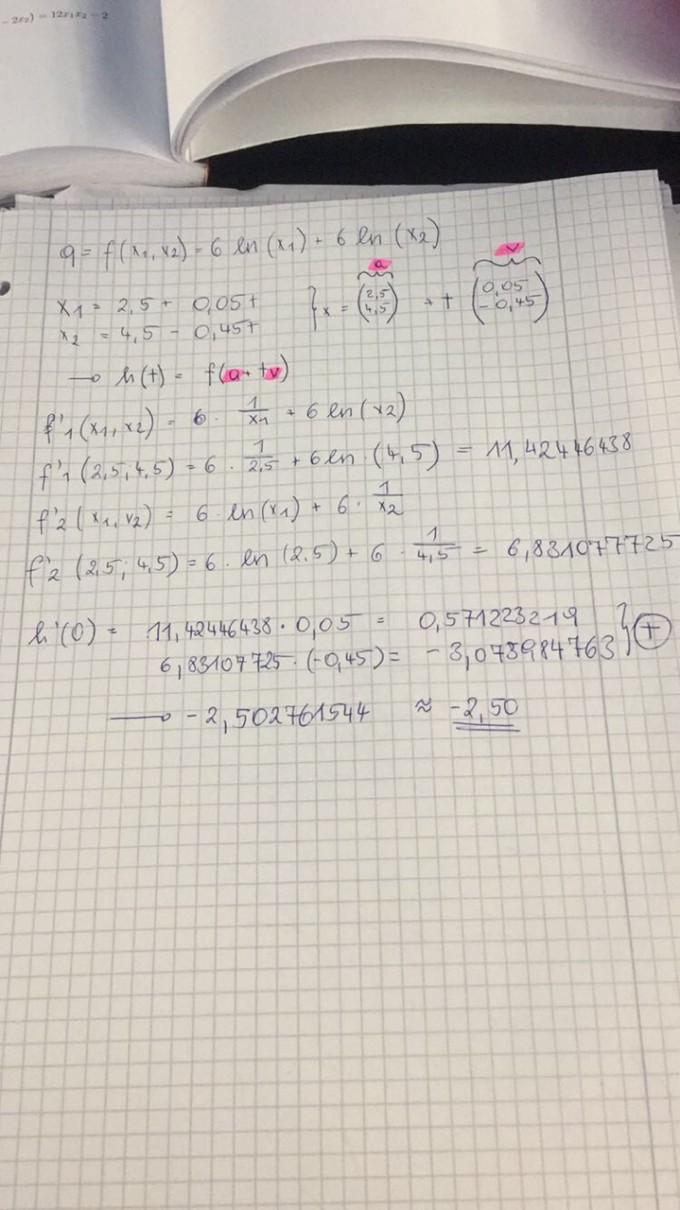 - 2x₂) = 12x₁x₂ - 2
q = f(x₁, x₂) = 6 ln(x₁) + 6 ln(x₂)
a v
x₁ = 2,5 + 0,05t
x₂ = 4,5 - 0,45t } x = (2,5 4,5) + t (0,05 - 0,45)
→ h(t) = f(a + tv)
f'₁(x₁, x₂) = 6 · 1/x₁ + 6 ln(x₂)
f'₁(2,5; 4,5) = 6 · 1/2,5 + 6 ln · (4,5) = 11,42446438
f'₂(x₁, x₂) = 6 · ln(x₁) + 6 · 1/x₂
f'₂(2,5; 4,5) = 6 · ln(2,5) + 6 · 1/4,5 = 6,831077725
h'(0) = 11,42446438 · 0,05 = 0,571223219
6,83107725 · (-0,45) = - 3,073984763 } +
→ - 2,502761544 ≈ -2,50